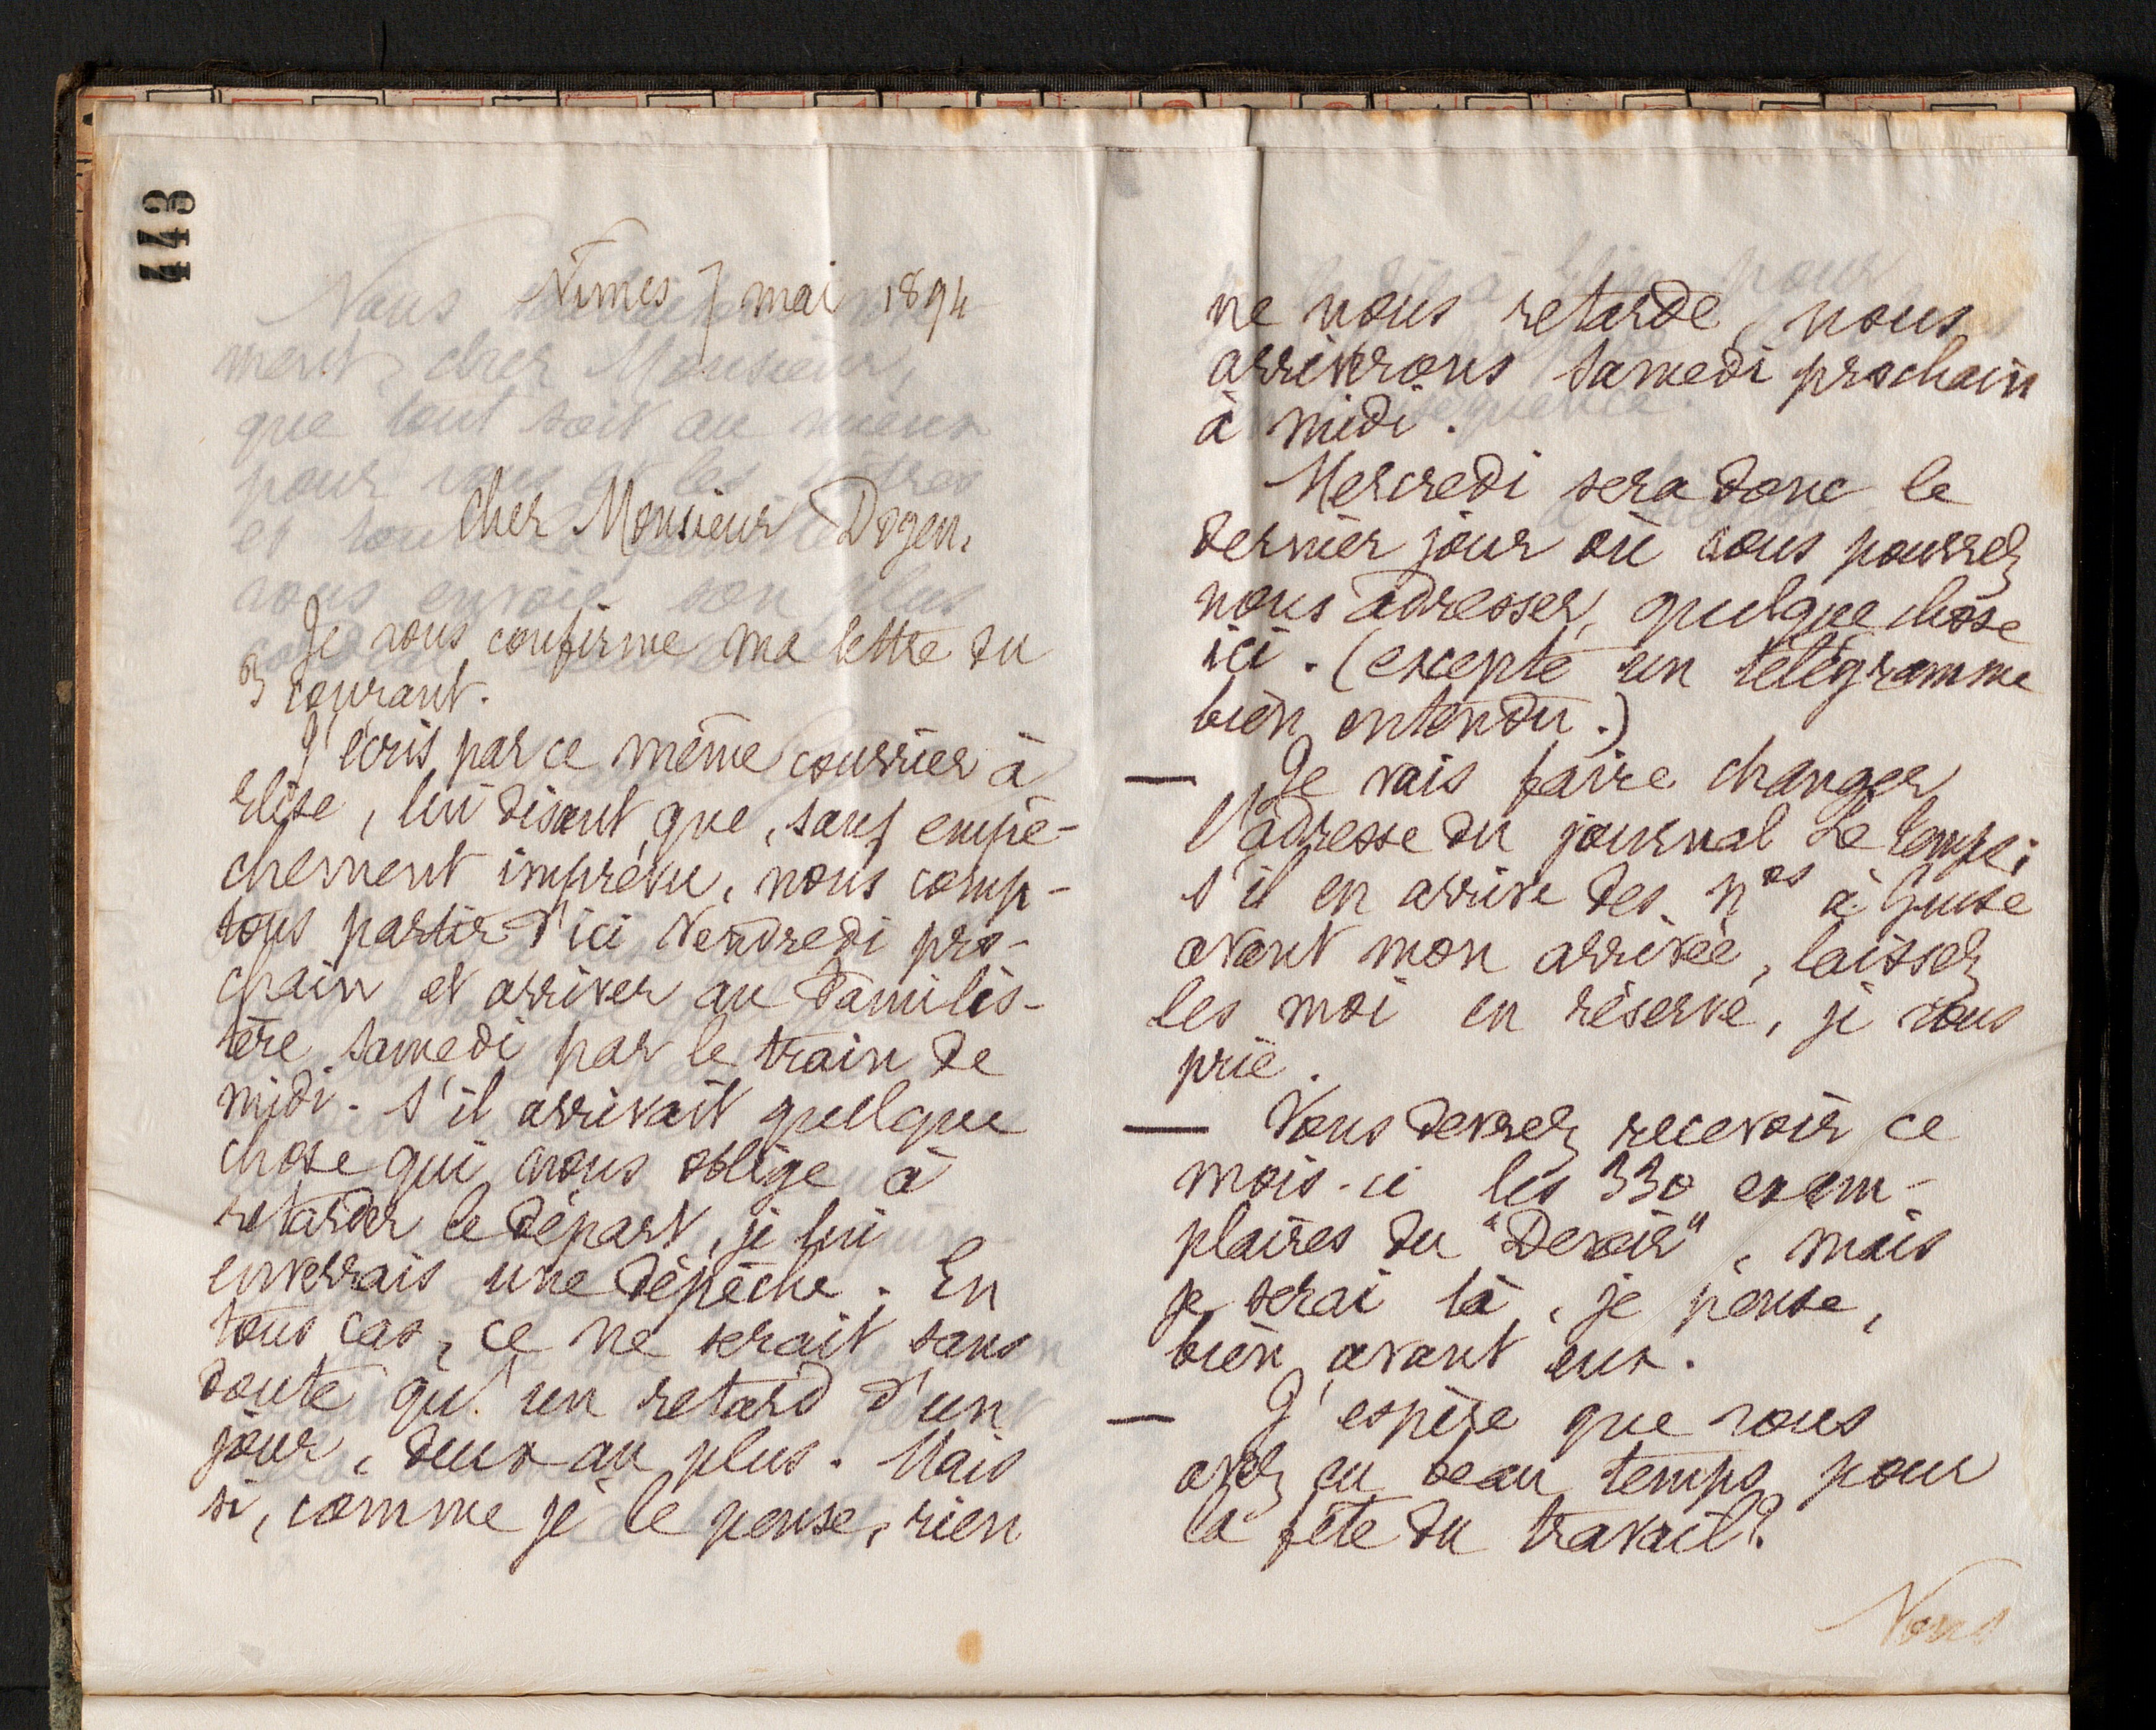 443
Nîmes 7 mai 1894
Cher Monsieur Doyen,
Je vous confirme ma lettre du
3 courant.
J'écris par ce même courrier à
Elise, lui disant que, sauf empê-
chement imprévu, nous comp-
tons partir d'ici Vendredi pro-
chain et arriver au Familis-
tère samedi par le train de
midi. S'il arrivait quelque
chose qui nous oblige à
retarder le départ, je lui
enverrais une dépêche. En
tous cas, ce ne serait sans
doute qu'un retard d'un
jour, deux au plus. Mais
si, comme je le pense, rien
ne nous retarde, nous
arriverons samedi prochain
à midi.
Mercredi sera donc le
dernier jour où vous pourrez
nous adresser quelque chose
ici. (excepté un télégramme
bien entendu.)
— Je vais faire changer
l'adresse du journal Le Temps;
s'il en arrive des nos à Guise
avant mon arrivée, laissez
les moi en réserve, je vous
prie.
— Vous devrez recevoir ce
mois-ci les 330 exem-
plaires du "Devoir", mais
je serai là, je pense,
bien avant eux.
— J'espère que vous
avez eu beau temps pour
la fête du travail?
Nous